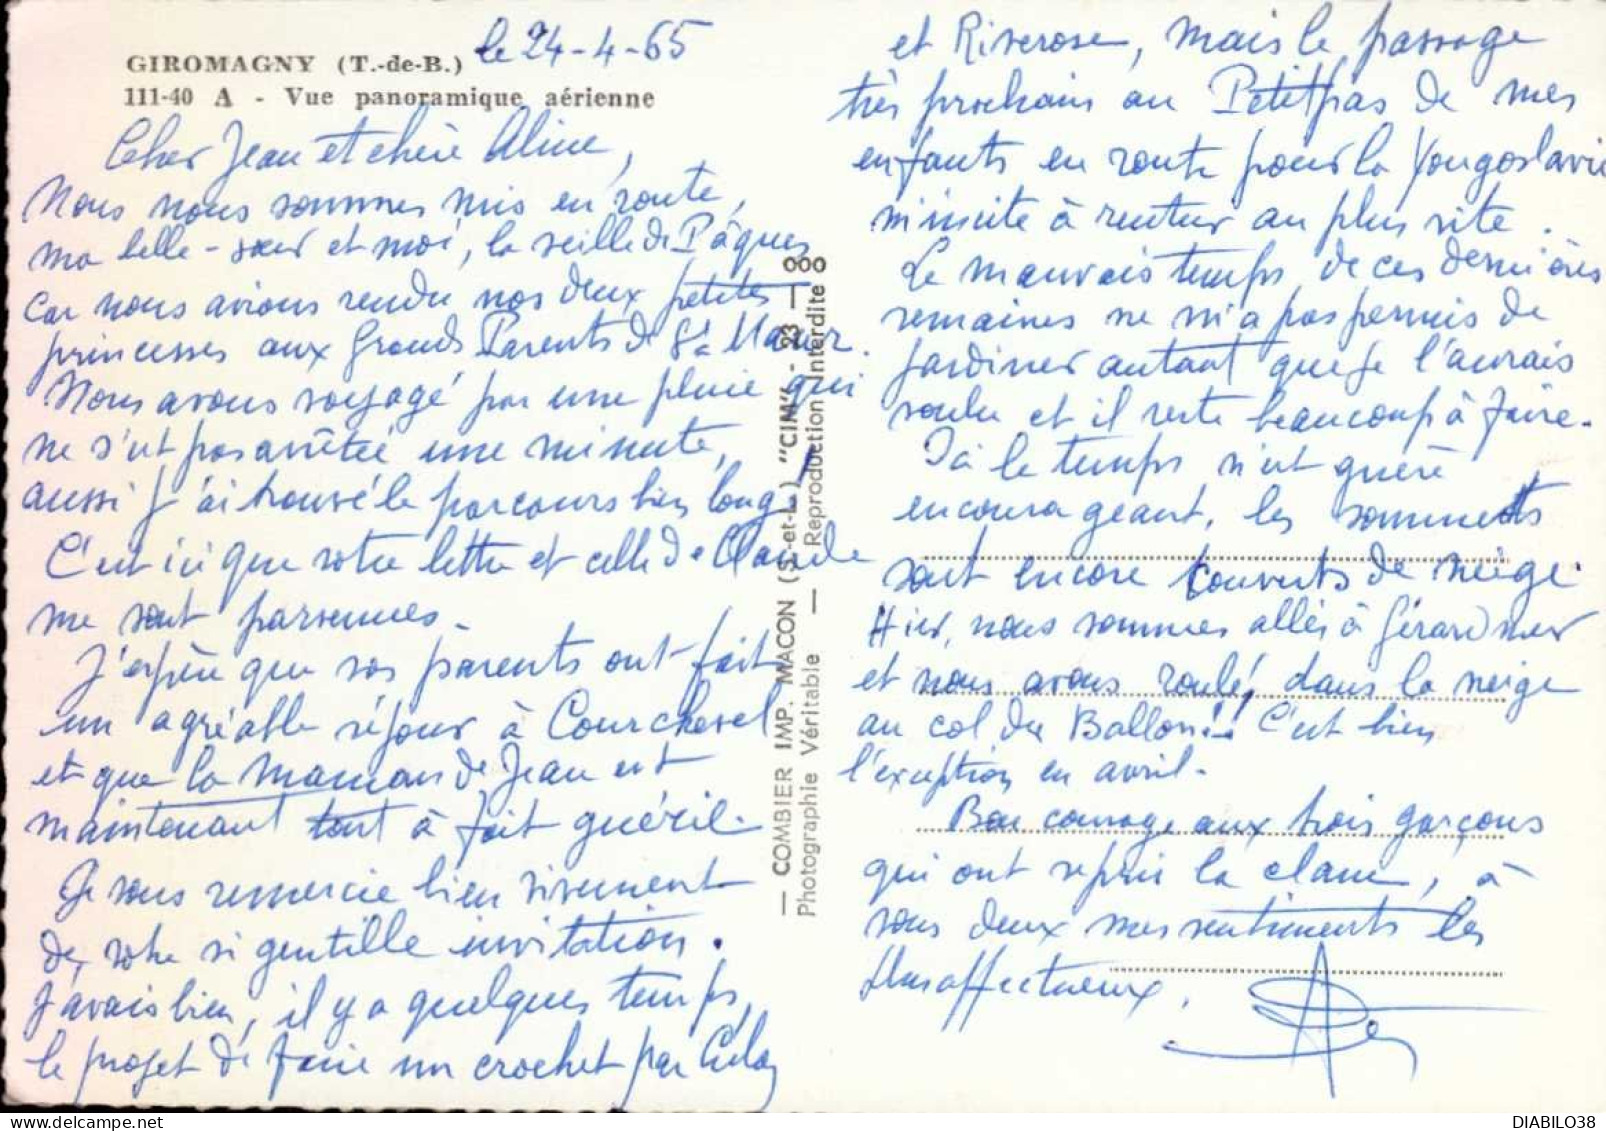 GIROMAGNY (T.-de-B.) le 24-4-65
111-40 A - Vue panoramique aérienne
Cher Jean et chère Aline,
Nous nous sommes mis en route,
ma belle-sœur et moi, la veille de Pâques
car nous avions rendu nos deux petites
princesses aux Grands Parents de St Maur.
Nous avons voyagé par une pluie qui
ne s'est pas arrêtée une minute,
aussi j'ai trouvé le parcours bien long!
C'est ici que votre lettre et celle de Claude
me sont parvenues.
J'espère que vos parents ont fait
un agréable séjour à Courchevel
et que la Maman de Jean est
maintenant tout à fait guérie.
Je vous remercie bien vivement
de votre si gentille invitation.
J'avais bien, il y a quelques temps,
le projet de faire un crochet par
et Riverose, mais le passage
très prochain au Petitpas de mes
enfants en route pour la Yougoslavie
m'incite à rentrer au plus vite.
Le mauvais temps de ces dernières
semaines ne m'a pas permis de
jardiner autant que je l'aurais
voulu et il reste beaucoup à faire.
Ici le temps n'est guère
encourageant, les sommets
sont encore couverts de neige.
Hier, nous sommes allés à Gérardmer
et nous avons roulé, dans la neige
au col du Ballon! C'est bien
l'exception en avril.
Bon courage aux trois garçons
qui ont repris la classe, à
vous deux mes sentiments les
plus affectueux.
— COMBIER IMP. MACON (S.-et-L.) "CIM" - 23 — 000
Photographie Véritable — Reproduction Interdite
DIABILO38